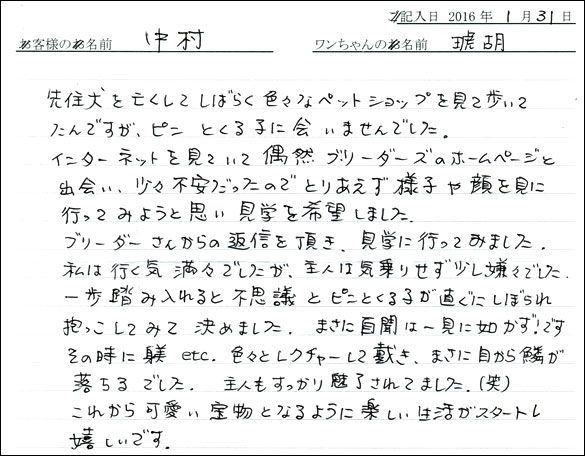 ご記入日 2016年 1月31日
お客様のお名前 中村 ワンちゃんのお名前 琥胡
先住犬を亡くしてしばらく色々なペットショップを見て歩いて
たんですが、ピンとくる子に会いませんでした。
インターネットを見ていて偶然ブリーダーズのホームページと
出会い、少々不安だったのでとりあえず様子や顔を見に
行ってみようと思い見学を希望しました。
ブリーダーさんからの返信を頂き、見学に行ってみました。
私は行く気満々でしたが、主人は気乗りせず少し嫌々でした。
一歩踏み入れると不思議とピンとくる子が直ぐにしぼられ
抱っこしてみて決めました。まさに百聞は一見に如かず!です
その時に躾etc.色々とレクチャーして戴き、まさに目から鱗が
落ちるでした。主人もすっかり魅了されてました。(笑)
これから可愛い宝物となるように楽しい生活がスタートし
嬉しいです。